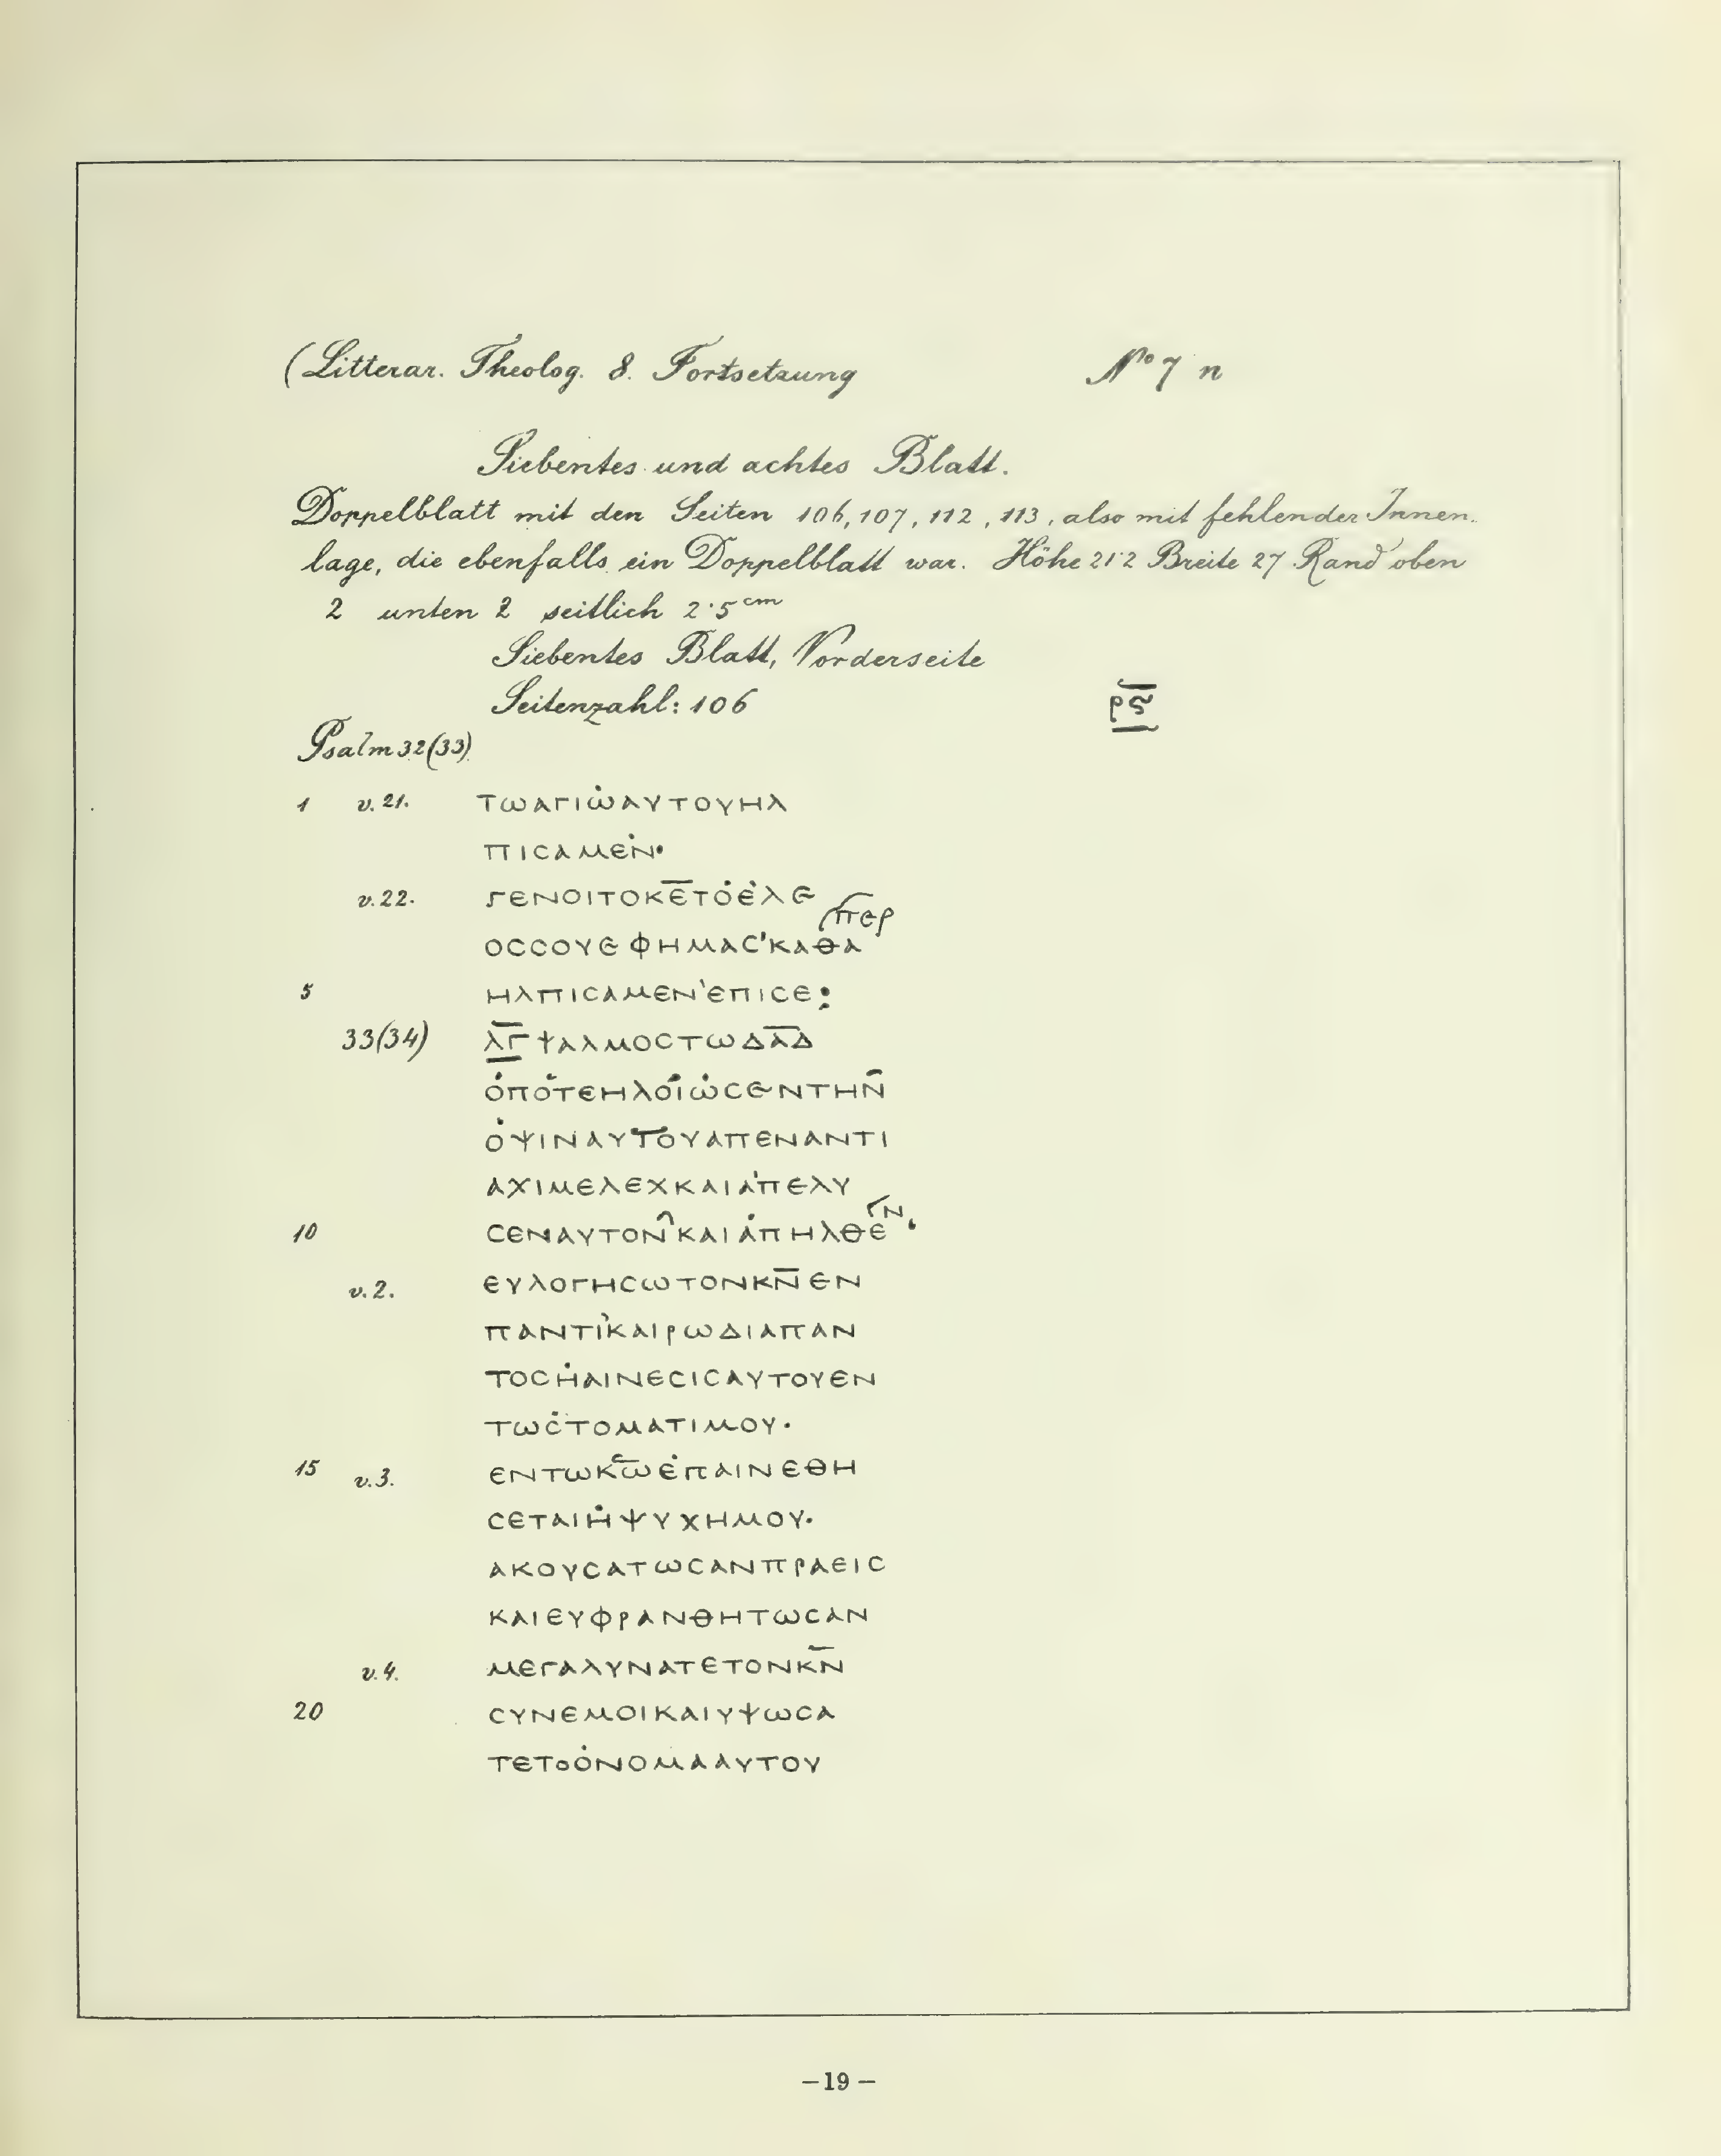 (Litterar. Theolog. 8. Fortsetzung No 7 n
Siebentes und achtes Blatt.
Doppelblatt mit den Seiten 106, 107, 112, 113, also mit fehlender Innen.
lage, die ebenfalls ein Doppelblatt war. Höhe 21·2 Breite 27 Rand oben
2 unten 2 seitlich 2·5 cm
Siebentes Blatt, Vorderseite
Seitenzahl: 106 ρϛ̅
Psalm 32(33)
1 v. 21. ΤωΑΓΙω̇ΑΥΤΟΥΗΛ
ΠΙϹΑΜΕΝ̇·
v. 22. ΓΕΝΟΙΤΟΚΕ̅ΤȮΕ̇ΛΕ
ΟϹϹΟΥΕΦΗΜΑϹ'ΚΑΘΑΠΕΡ
5 ΗΛΠΙϹΑΜΕΝ'ΕΠΙϹΕ:
33(34) Λ̅Γ̅ΨΑΛΜΟϹΤωΔΑ̅Δ
ȮΠȮΤΕΗΛΟΪω̇ϹΕΝΤΗΝ̅
ȮΨΙΝΑΥΤΟΥΑΠΕΝΑΝΤΙ
ΑΧΙΜΕΛΕΧΚΑΙΑ̇ΠΕΛΥ
10 ϹΕΝΑΥΤΟΝ̂ΚΑΙΑ̇ΠΗΛΘΕΝ·
v. 2. ΕΥΛΟΓΗϹωΤΟΝΚΝ̅ΕΝ
ΠΑΝΤΙ'ΚΑΙΡωΔΙΑΠΑΝ
ΤΟϹΗ̇ΑΙΝΕϹΙϹΑΥΤΟΥΕΝ
ΤωϹ̇ΤΟΜΑΤΙΜΟΥ·
15 v. 3. ΕΝΤωΚω̅Ε̇ΠΑΙΝΕΘΗ
ϹΕΤΑΙΗ̇ΨΥΧΗΜΟΥ·
ΑΚΟΥϹΑΤωϹΑΝΠΡΑΕΙϹ
ΚΑΙΕΥΦΡΑΝΘΗΤωϹΑΝ
v. 4. ΜΕΓΑΛΥΝΑΤΕΤΟΝΚΝ̅
20 ϹΥΝΕΜΟΙΚΑΙΥΨωϹΑ
ΤΕΤΟȮΝΟΜΑΑΥΤΟΥ
–19–